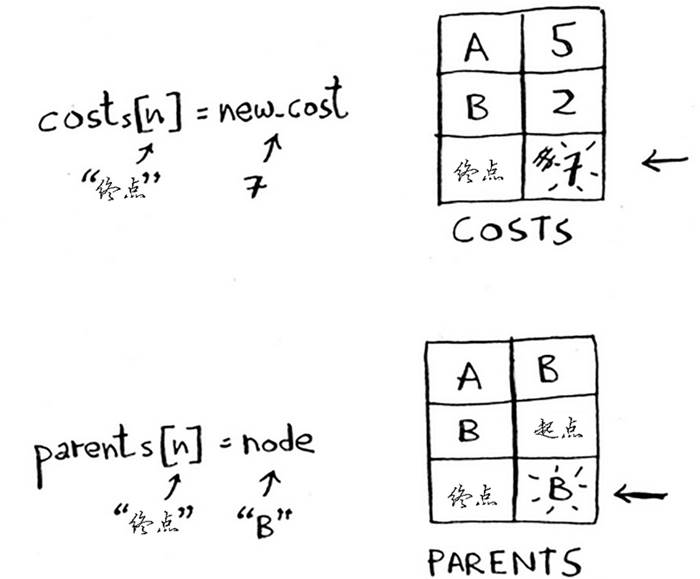 costs[n] = new_cost
"终点" 7
A 5
B 2
终点 7
COSTS
parents[n] = node
"终点" "B"
A B
B 起点
终点 B
PARENTS